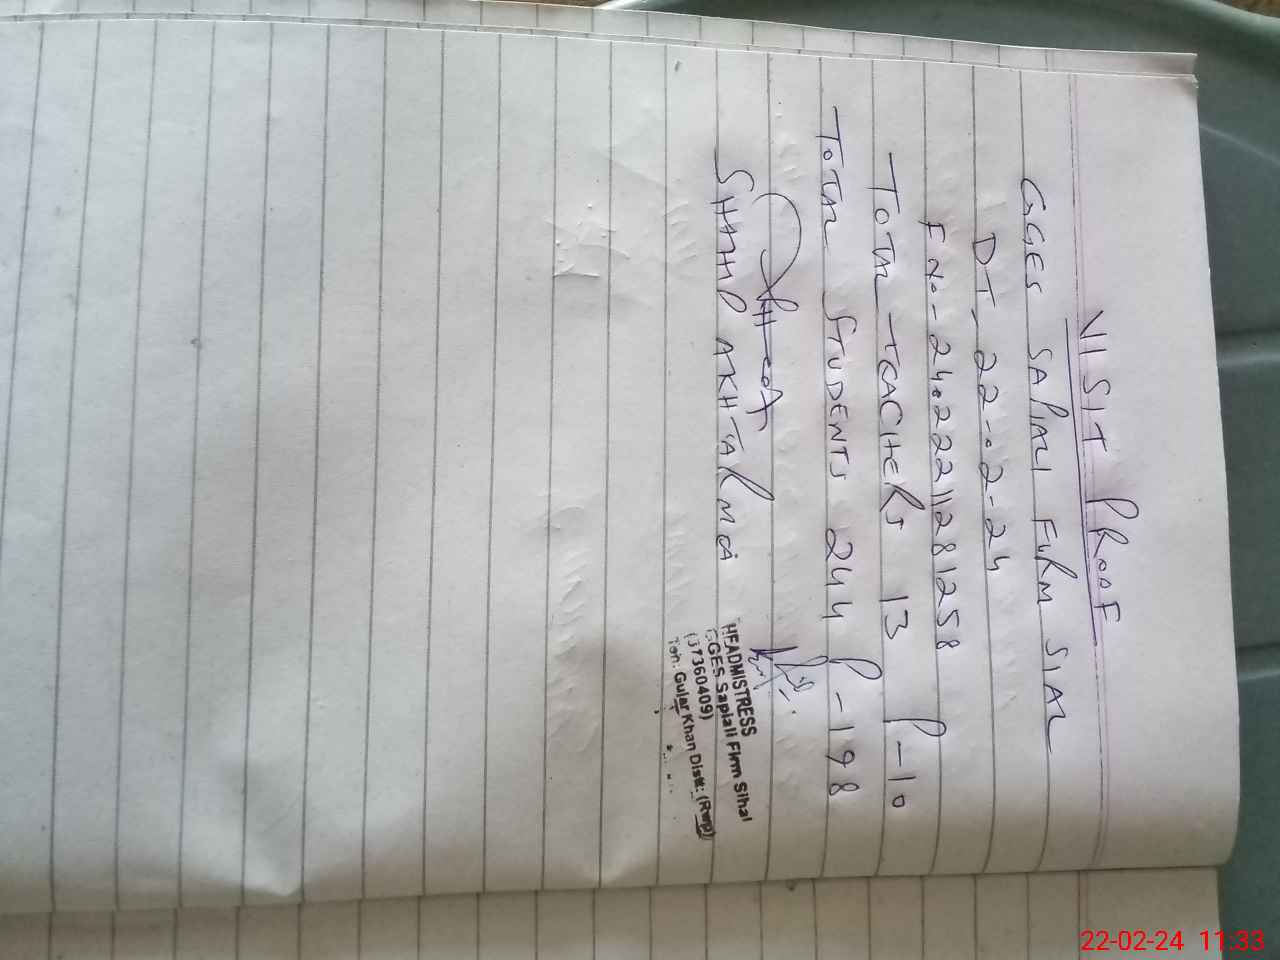 VISIT PROOF
GGES SAPIALI FIRM SIAL
DT - 22-02-24
FNo-24022211281258
TOTAL TEACHERS 13 P-10
TOTAL STUDENTS 244 P-198
SHAHID AKHTAR MEA
HEADMISTRESS
GGES Sapiali Firm Sihal
(37360409)
Teh: Gujar Khan Distt: (Rwp)
22-02-24 11:33